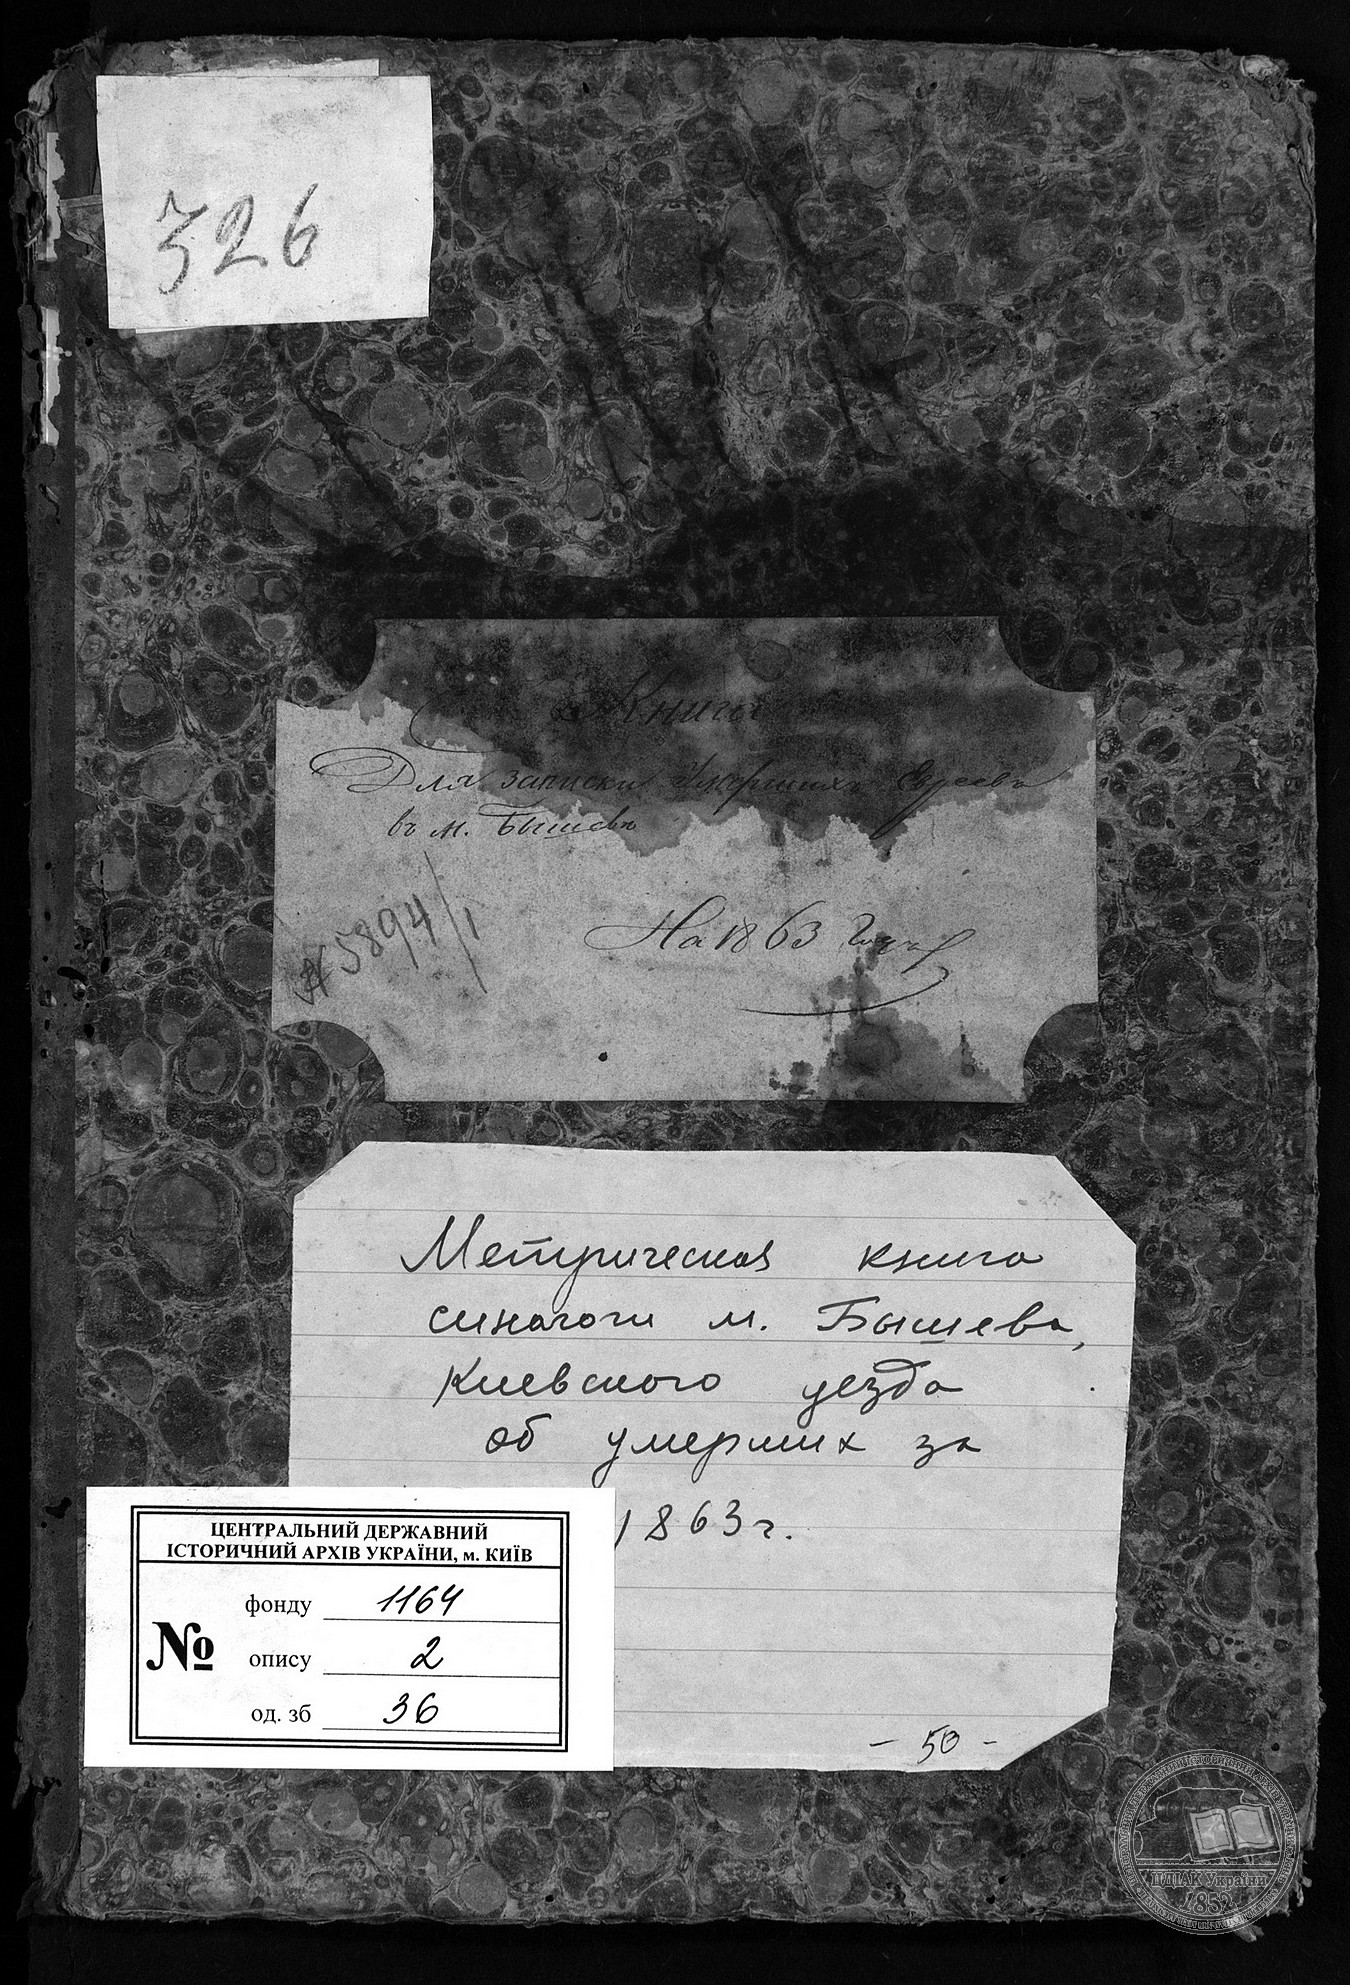 326
Книга
Для записки Умершихъ Евреевъ
въ м. Бышевъ
№ 5894/1
На 1863 Годъ
Метрическая книга
синагоги м. Бышева,
Киевского уезда
об умерших за
1863 г.
ЦЕНТРАЛЬНИЙ ДЕРЖАВНИЙ
ІСТОРИЧНИЙ АРХІВ УКРАЇНИ, м. КИЇВ
№
фонду 1164
опису 2
од. зб 36
- 50 -
ЦДІАК України
1852